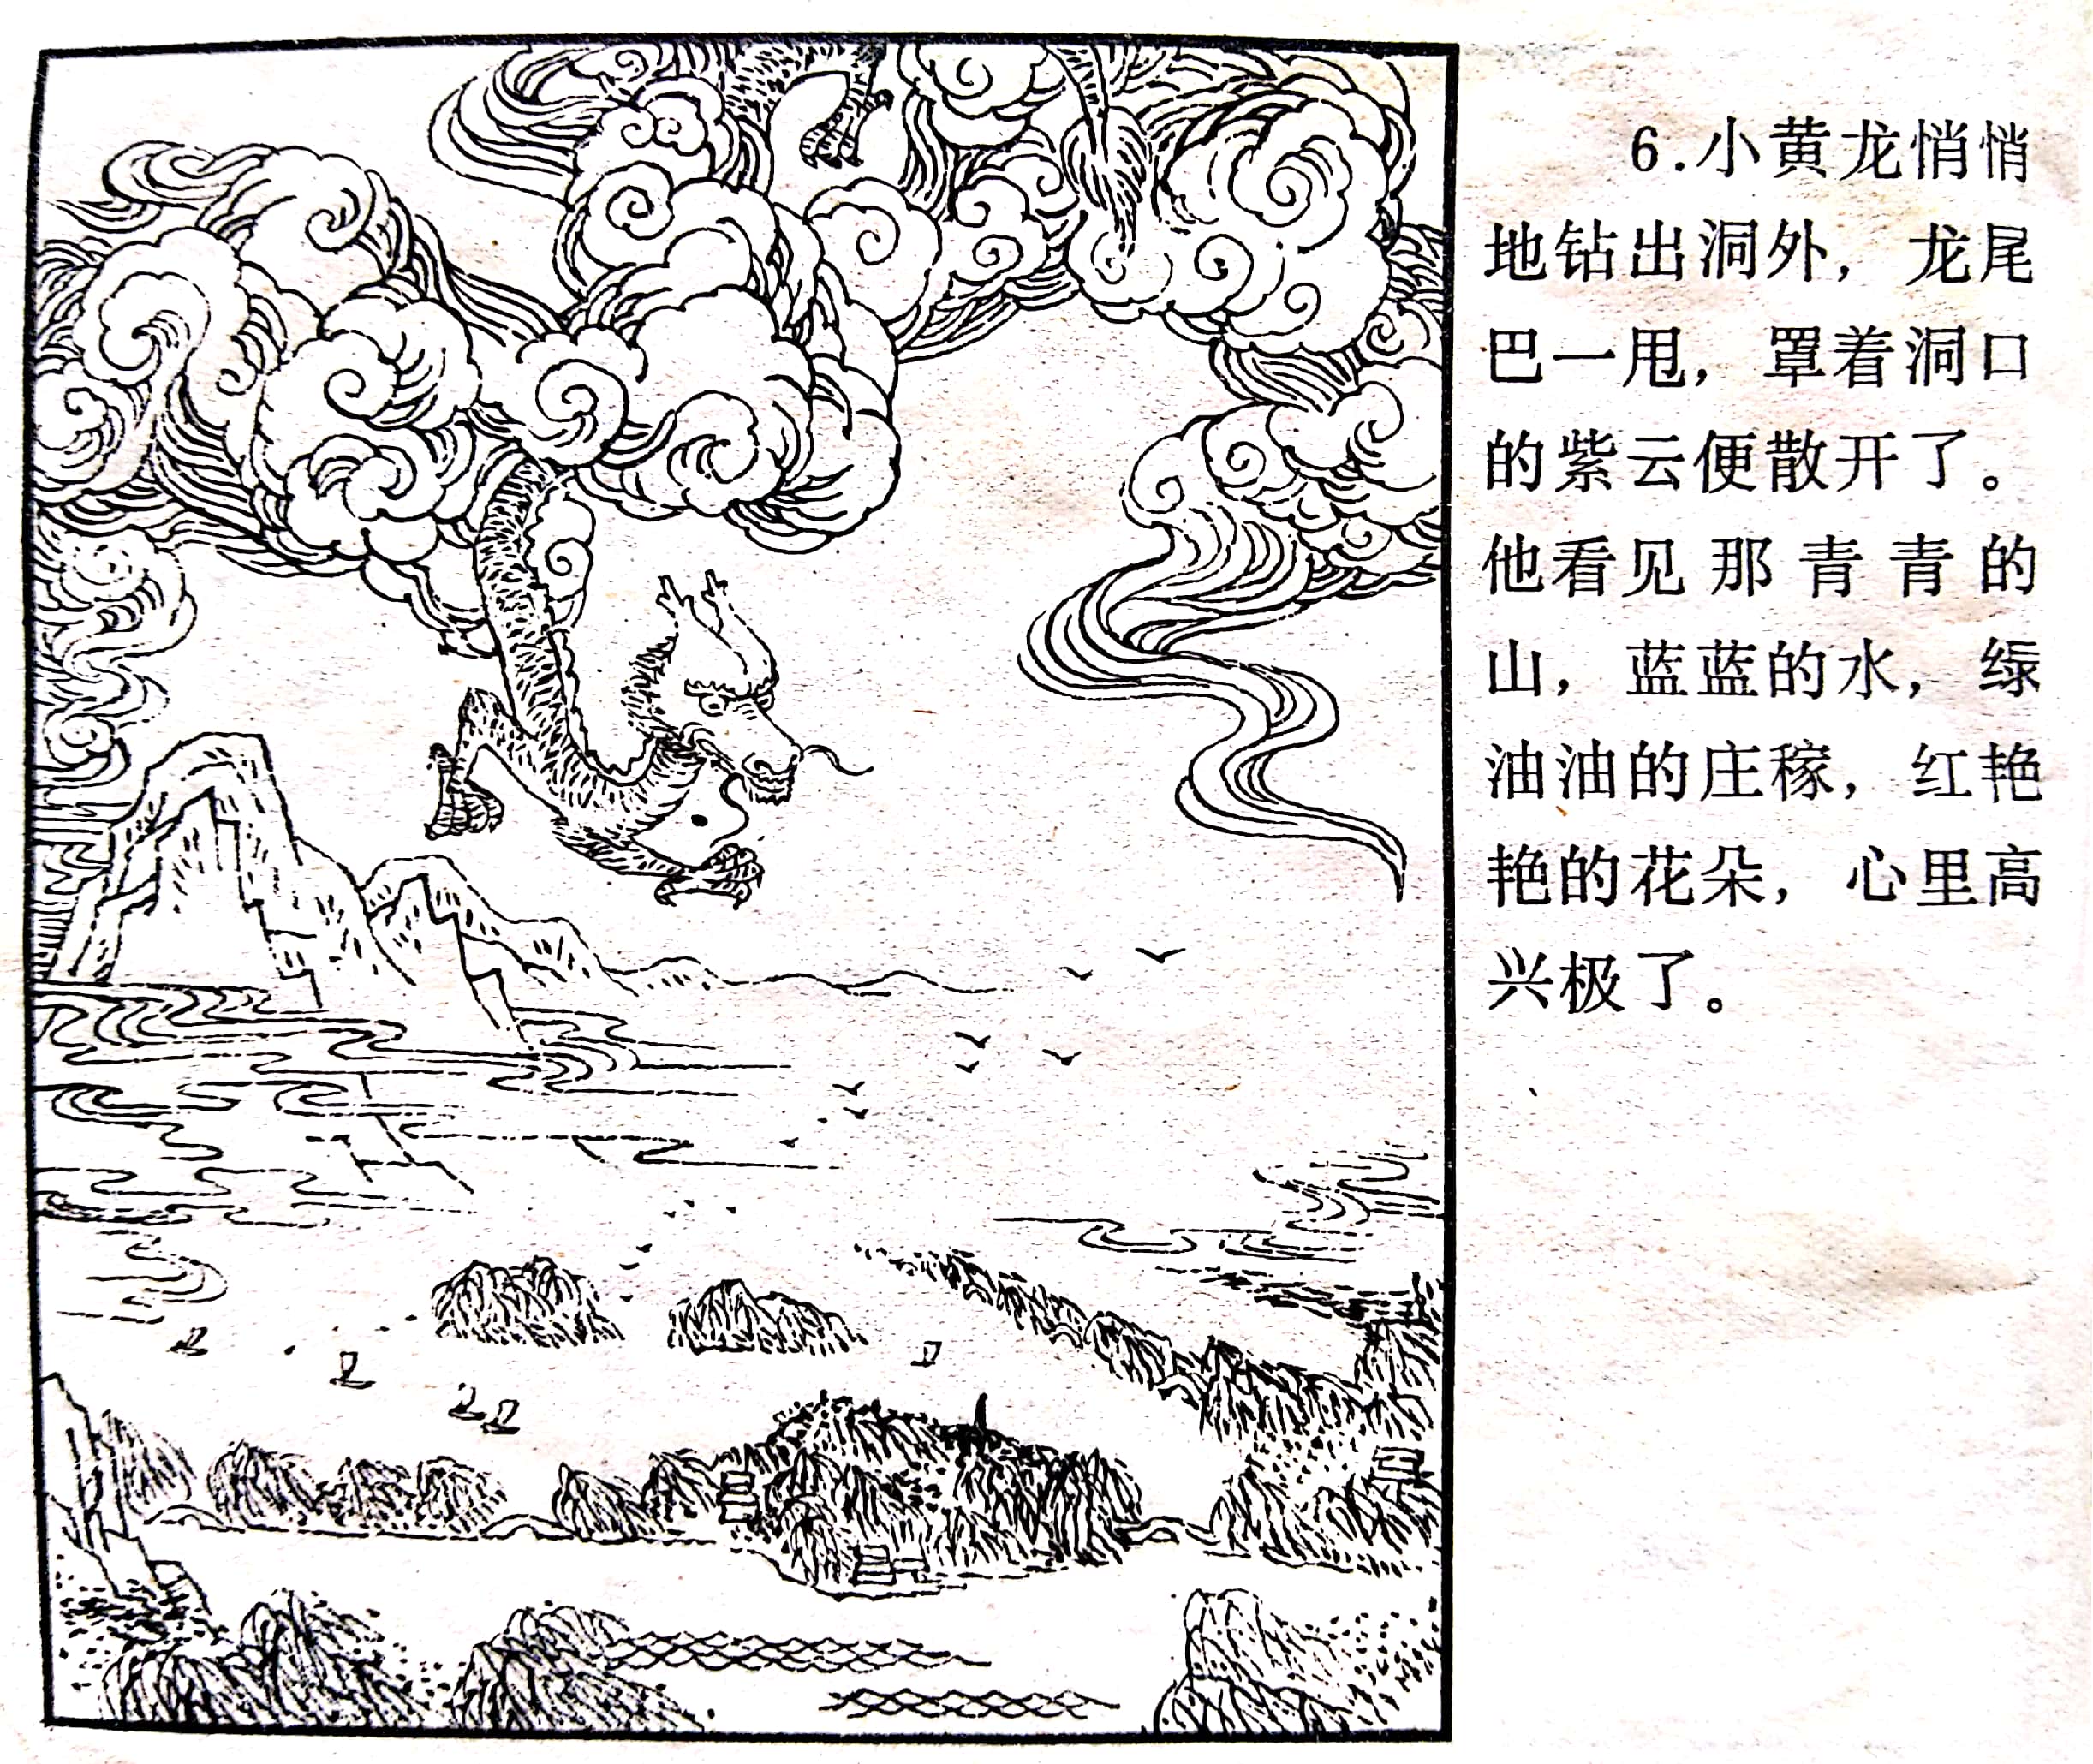 6.小黄龙悄悄
地钻出洞外，龙尾
巴一甩，罩着洞口
的紫云便散开了。
他看见那青青的
山，蓝蓝的水，绿
油油的庄稼，红艳
艳的花朵，心里高
兴极了。